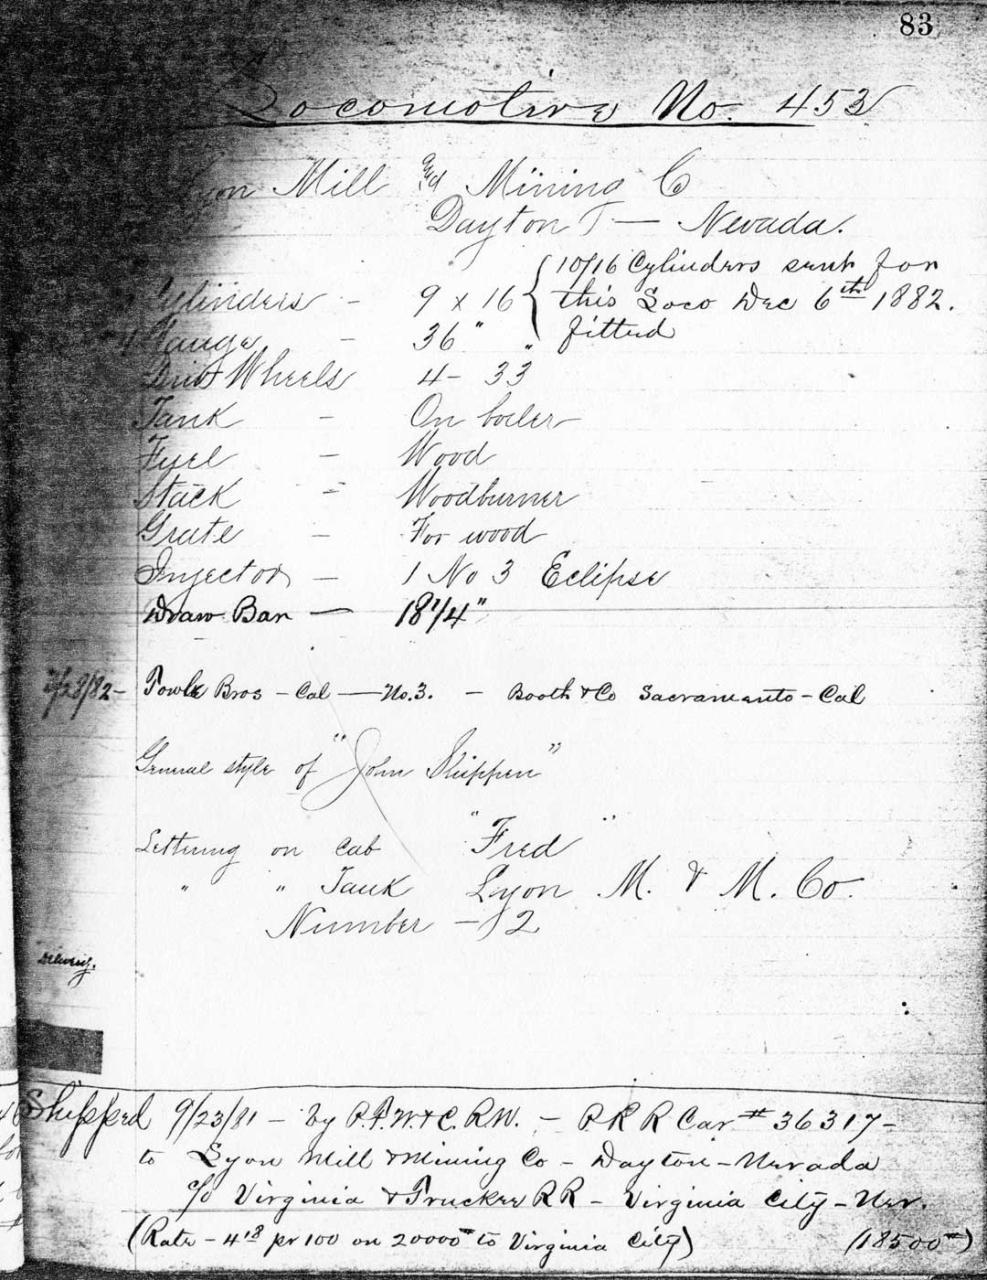 83
Locomotive No. 453
Lyon Mill and Mining Co
Dayton — Nevada.
Cylinders - 9 x 16 { 10/16 Cylinders sent for
this Loco Dec 6th 1882.
fitted
Gauge - 36"
Driv Wheels 4- 33"
Tank - On boiler
Fuel - Wood
Stack - Woodburner
Grate - For wood
Injector - 1 No 3 Eclipse
Draw Bar — 18 1/4"
/28/82- Towle Bros - Cal — No. 3. - Booth & Co Sacramento - Cal
General style of "John Shippen"
Lettering on Cab "Fred"
" " Tank Lyon M. & M. Co.
Number - 2
Delivery.
Shipped 9/23/81 - by P.F.W. & C. RW. - P R R Car # 36317-
to Lyon Mill & Mining Co - Dayton - Nevada
c/o Virginia & Truckee RR - Virginia City - Nev.
(Rate - 4 18 pr 100 on 20000 # to Virginia City) (18500 #)